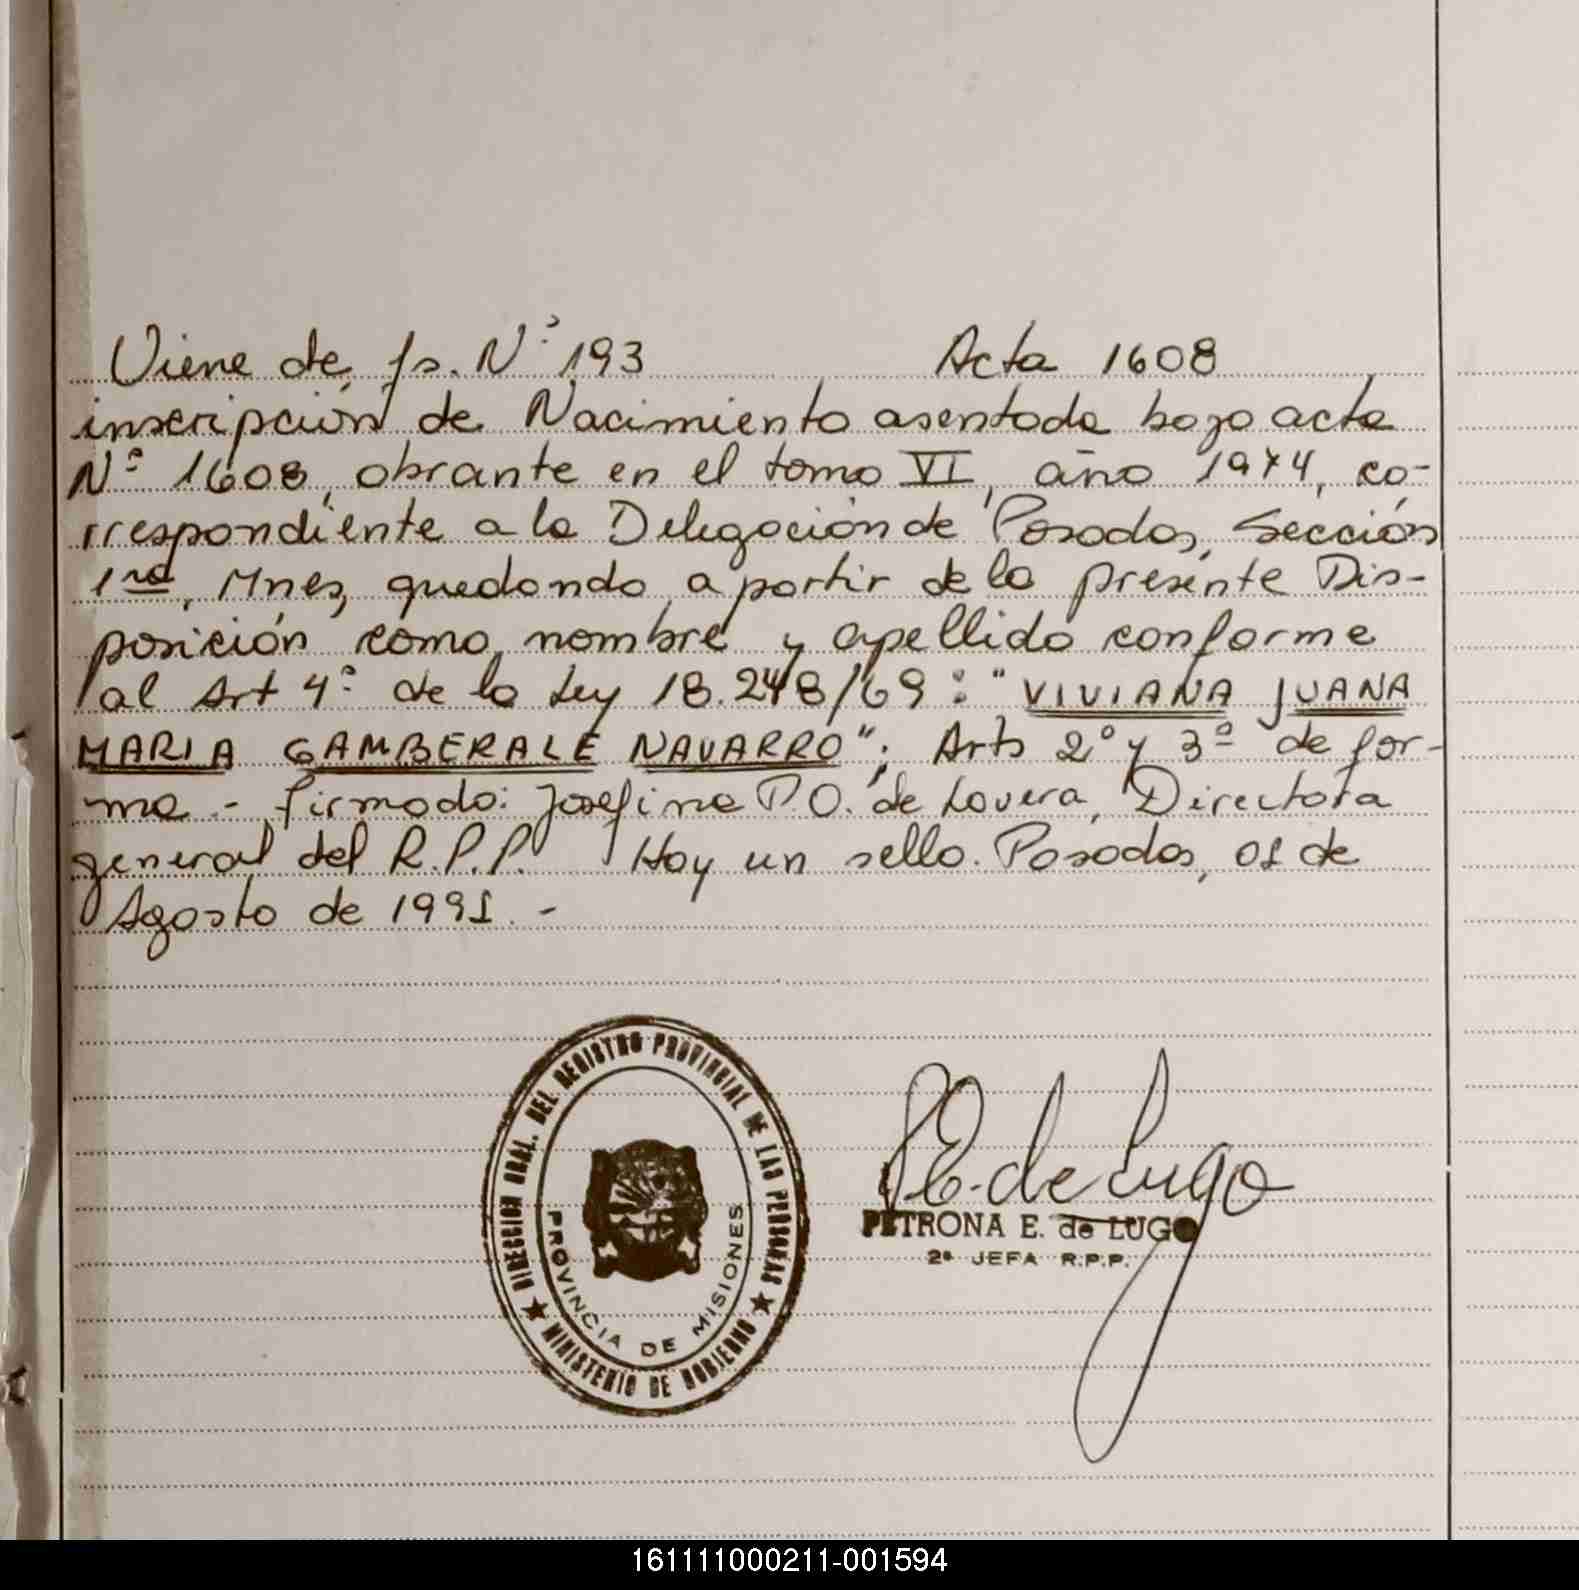 Viene de fs. Nº 193 Acta 1608
inscripción de Nacimiento asentada bajo acta
Nº 1608, obrante en el tomo VI, año 1974, co-
rrespondiente a la Delegación de Posadas, Sección
1ra, Mnes, quedando a partir de la presente Dis-
posición como nombre y apellido conforme
al Art 4º de la Ley 18.248/69: "VIVIANA JUANA
MARIA GAMBERALE NAVARRO"; Arts 2º y 3º de for-
ma - firmado: Josefina P.O. de Lovera, Directora
general del R.P.P. Hay un sello. Posadas, 01 de
Agosto de 1991. -
DIRECCION GRAL. DEL REGISTRO PROVINCIAL DE LAS PERSONAS
PROVINCIA DE MISIONES
★ MINISTERIO DE GOBIERNO ★
P.E. de Lugo
PETRONA E. de LUGO
2ª JEFA R.P.P.
161111000211-001594